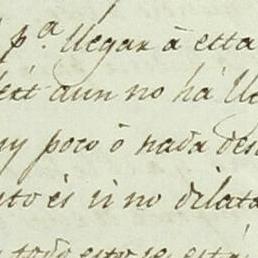 pª. llegar â esta
aun no há lle
uy poco ô nada des
nto és si no dilata
todo esto se está